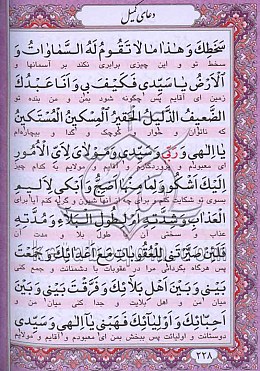 دعای کمیل
سَخَطِكَ وَ هٰذا ما لا تَقُومُ لَهُ السَّماواتُ وَ
سخط تو و این چیزی برابری نکند بر آسمانها و
الْاَرْضُ يا سَيِّدى فَكَيْفَ بى وَ اَنَا عَبْدُكَ
زمین ای آقایم پس چگونه شود بمن و من بنده تو
الضَّعيفُ الذَّليلُ الْحَقيرُ الْمِسْكينُ الْمُسْتَكينُ
که ناتوان و خوار و کوچک و گدا و بیچاره‌ام
يا اِلٰهى وَ رَبّى وَ سَيِّدى وَ مَوْلاىَ لِاَىِّ الْاُمُورِ
ای معبودم و پروردگارم و آقایم و مولایم به کدام چیز
اِلَيْكَ اَشْكُو وَ لِما مِنْها اَضِجُّ وَ اَبْكى لِاَليمِ
بسوی تو شکایت کنم و برای چه از آنها شیون و گریه کنم آیا برای
الْعَذابِ وَ شِدَّتِهِ اَمْ لِطُولِ الْبَلاءِ وَ مُدَّتِهِ
عذاب و سختی آن یا طول بلا و مدت آن
فَلَئِنْ صَيَّرْتَنى لِلْعُقُوباتِ مَعَ اَعْدائِكَ وَ جَمَعْتَ
پس هرگاه بگردانی مرا در عقوبات با دشمنانت و جمع کنی
بَيْنى وَ بَيْنَ اَهْلِ بَلائِكَ وَ فَرَّقْتَ بَيْنى وَ بَيْنَ
میان من و اهل بلایت و جدا کنی میان من و
اَحِبّائِكَ وَ اَوْلِيائِكَ فَهَبْنى يا اِلٰهى وَ سَيِّدى
دوستانت و اولیائت پس ببخش بمن ای معبودم و آقایم و مولایم
۲۲۸